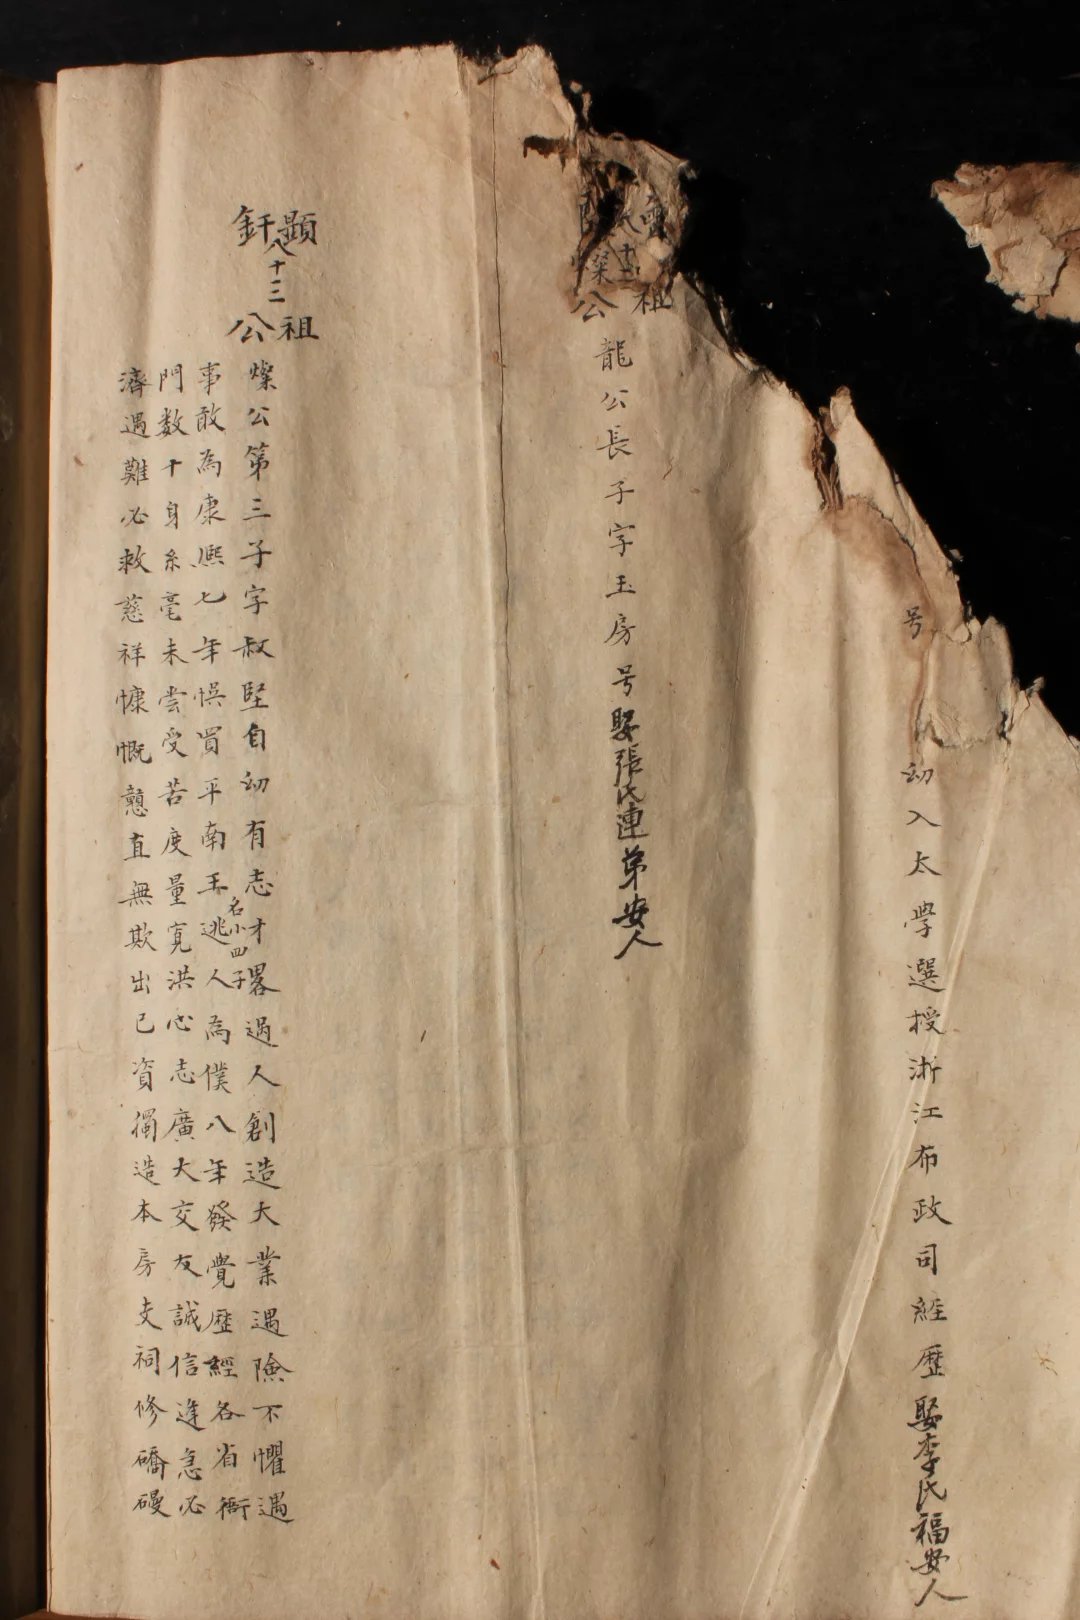 号
幼入太學選授淅江布政司經歷娶李氏福安人
祖
燦公
龍公長子字玉房号娶張氏連弟安人
顯祖
八十三
釬公
燦公第三子字叔堅自幼有志才畧過人創造大業遇險不懼遇
事敢為康熈七年悞買平南王逃人名小四子為僕八年發覺歷經各省衙
門数十身糸毫未尝受苦度量寬洪心志廣大交友誠信逢急必
濟遇難必救慈祥慷慨戇直無欺出已資獨造本房支祠修礄磉